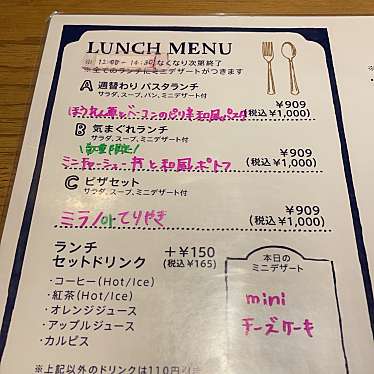 LUNCH MENU
※ 12:00 ~ 14:30 なくなり次第終了
※全てのランチにミニデザートがつきます
A 週替わり パスタランチ
サラダ、スープ、パン、ミニデザート付
¥909
ほうれん草とベーコンのピリ辛和風パスタ
(税込 ¥1,000)
B 気まぐれランチ
サラダ、スープ、ミニデザート付
数量限定!
¥909
ミニチャーシュー丼と和風ポトフ
(税込 ¥1,000)
C ピザセット
サラダ、スープ、ミニデザート付
¥909
ミラノorてりやき
(税込 ¥1,000)
ランチ
セットドリンク
+¥150
(税込 ¥165)
・コーヒー(Hot/Ice)
・紅茶(Hot/Ice)
・オレンジジュース
・アップルジュース
・カルピス
※上記以外のドリンクは110円
本日の
ミニデザート
mini
チーズケーキ